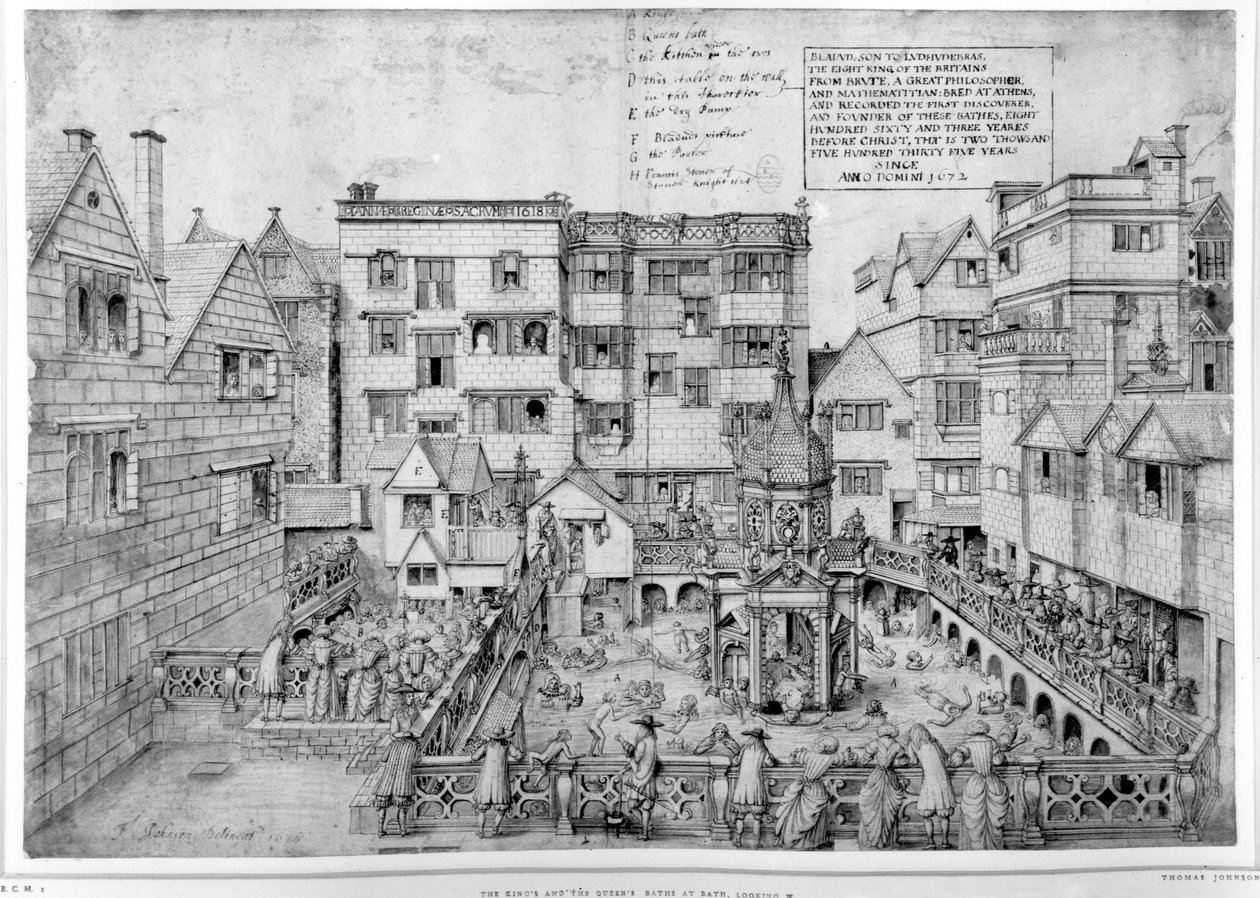 A Kings
B Queens bath
C the kitchen in the
D this table on the wall
in this Charecktor
E the dry Pump
F Bladuds pickture
G the Parlor
H Francis Stoner of
Stoner knight 1624
BLAUD, SON TO LVDHVDEBRAS,
THE EIGHT KING OF THE BRITAINS
FROM BRVTE, A GREAT PHILOSOPHER,
AND MATHEMATITIAN: BRED AT ATHENS,
AND RECORDED THE FIRST DISCOVERER,
AND FOVNDER OF THESE BATHES, EIGHT
HVNDRED SIXTY AND THREE YEARES
BEFORE CHRIST, THAT IS TWO THOWSAND
FIVE HVNDRED THIRTY FIVE YEARS
SINCE
ANNO DOMINI 1672
ANNÆ REGINÆ SACRVM 1618
E
A
A
Johnson Delineat
B.C.M. 1
THOMAS JOHNSON
THE KING'S AND THE QUEEN'S BATHS AT BATH, LOOKING W